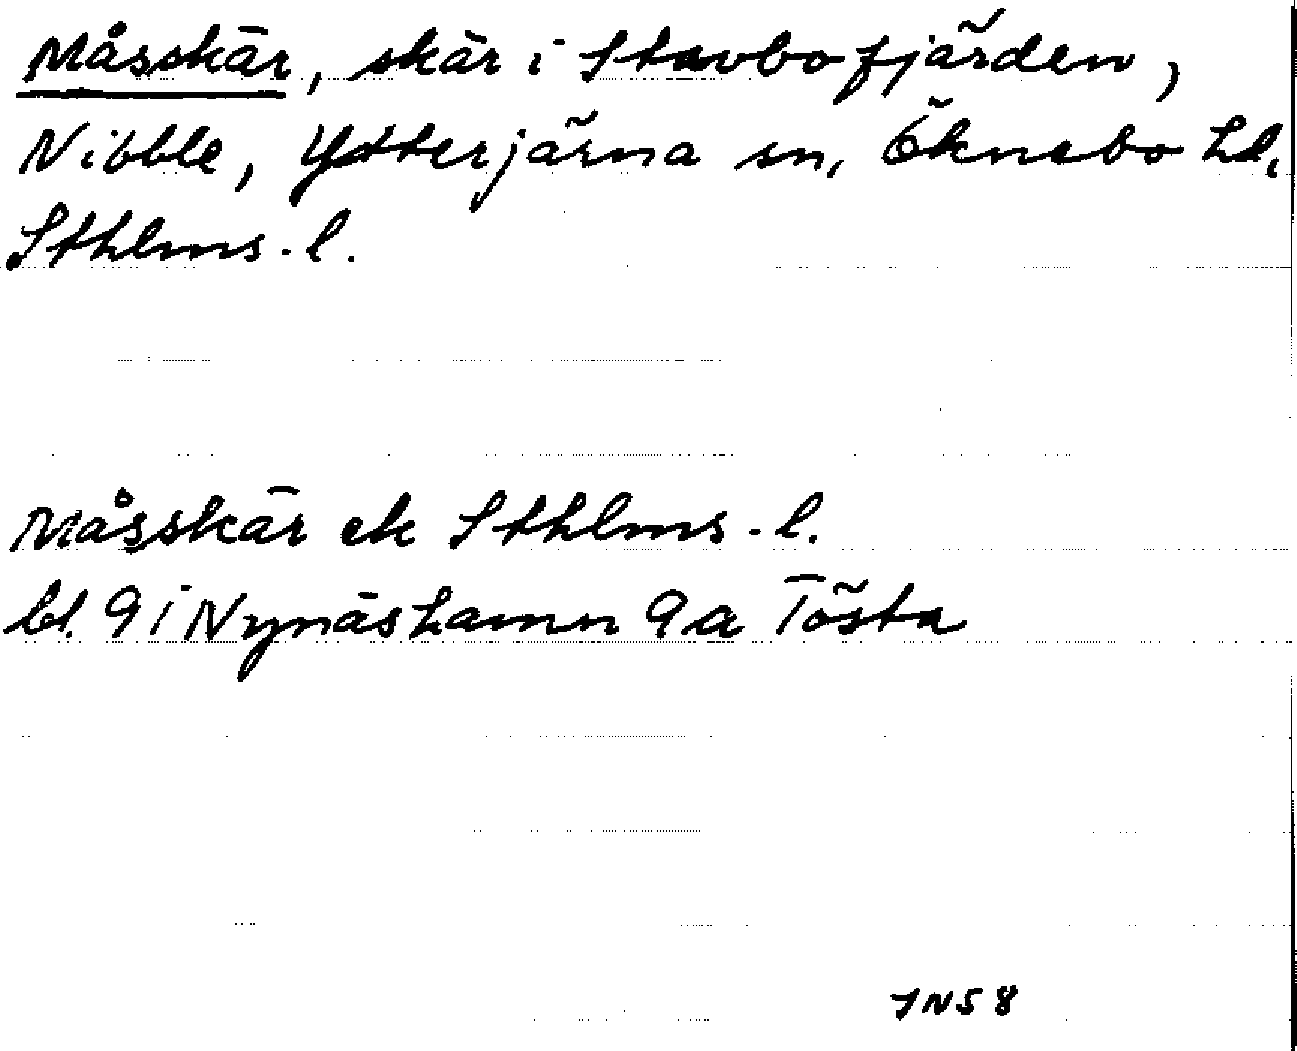 Måsskär, skär i Stavbofjärden,
Nibble, Ytterjärna sn, Öknebo hd,
Sthlms. l.
Måsskär ek Sthlms. l.
bl. 9 i Nynäshamn 9a Tösta
JN58